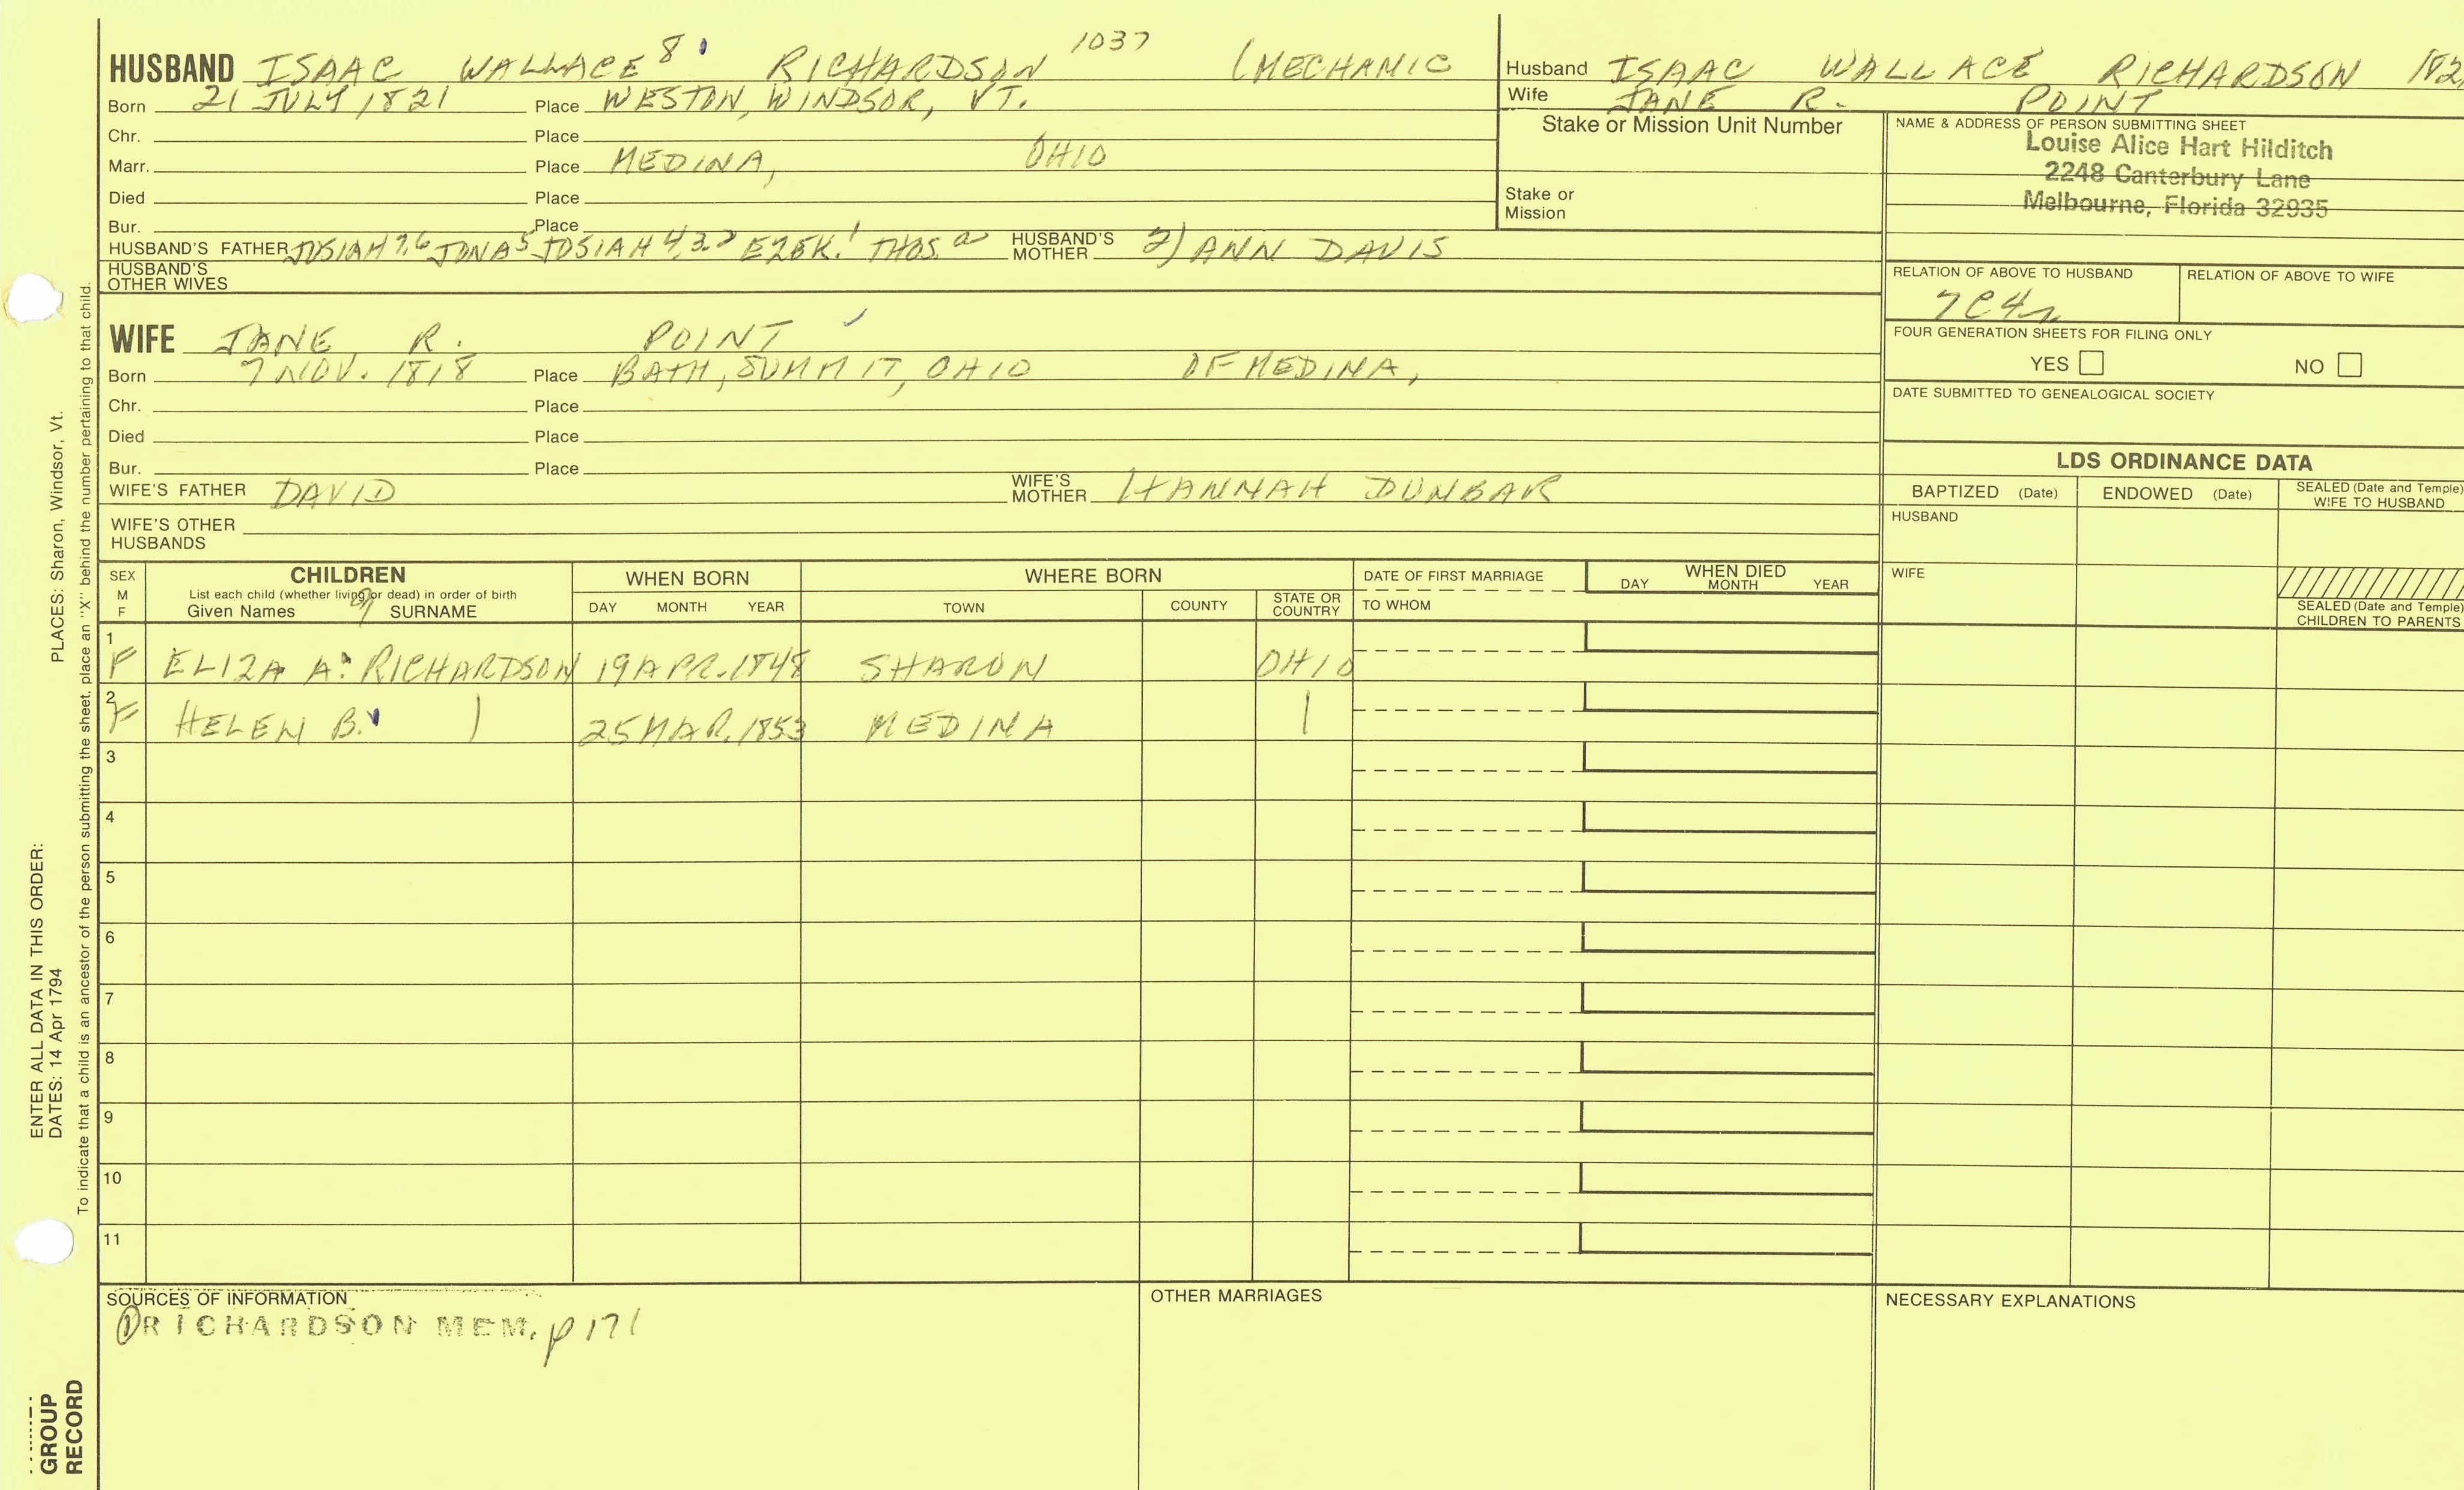 HUSBAND ISAAC WALLACE 8 RICHARDSON 1037 (MECHANIC
Born 21 JULY 1821 Place WESTON, WINDSOR, VT.
Chr. Place
Marr. Place MEDINA, OHIO
Died Place
Bur. Place
HUSBAND'S FATHER JOSIAH 7,6 JONAS 5 JOSIAH 4,3,2 EZEK. 1 THOS. a HUSBAND'S MOTHER 2) ANN DAVIS
HUSBAND'S OTHER WIVES
WIFE JANE R. POINT
Born 7 NOV. 1818 Place BATH, SUMMIT, OHIO OF MEDINA,
Chr. Place
Died Place
Bur. Place
WIFE'S FATHER DAVID WIFE'S MOTHER HANNAH DUNBAR
WIFE'S OTHER HUSBANDS
Husband ISAAC WALLACE RICHARDSON 182
Wife JANE R. POINT
Stake or Mission Unit Number
Stake or Mission
NAME & ADDRESS OF PERSON SUBMITTING SHEET
Louise Alice Hart Hilditch
2248 Canterbury Lane
Melbourne, Florida 32935
RELATION OF ABOVE TO HUSBAND RELATION OF ABOVE TO WIFE
7C4r
FOUR GENERATION SHEETS FOR FILING ONLY
YES NO
DATE SUBMITTED TO GENEALOGICAL SOCIETY
LDS ORDINANCE DATA
BAPTIZED (Date) ENDOWED (Date) SEALED (Date and Temple) WIFE TO HUSBAND
HUSBAND
WIFE
SEALED (Date and Temple) CHILDREN TO PARENTS
SEX M F
CHILDREN
List each child (whether living or dead) in order of birth
Given Names SURNAME
WHEN BORN
DAY MONTH YEAR
WHERE BORN
TOWN COUNTY STATE OR COUNTRY
DATE OF FIRST MARRIAGE
TO WHOM
WHEN DIED
DAY MONTH YEAR
1 F ELIZA A. RICHARDSON 19 APR. 1848 SHARON OHIO
2 F HELEN B. | 25 MAR. 1853 MEDINA |
3
4
5
6
7
8
9
10
11
SOURCES OF INFORMATION
① RICHARDSON MEM. p 171
OTHER MARRIAGES
NECESSARY EXPLANATIONS
ENTER ALL DATA IN THIS ORDER:
DATES: 14 Apr 1794 PLACES: Sharon, Windsor, Vt.
To indicate that a child is an ancestor of the person submitting the sheet, place an "X" behind the number pertaining to that child.
GROUP
RECORD